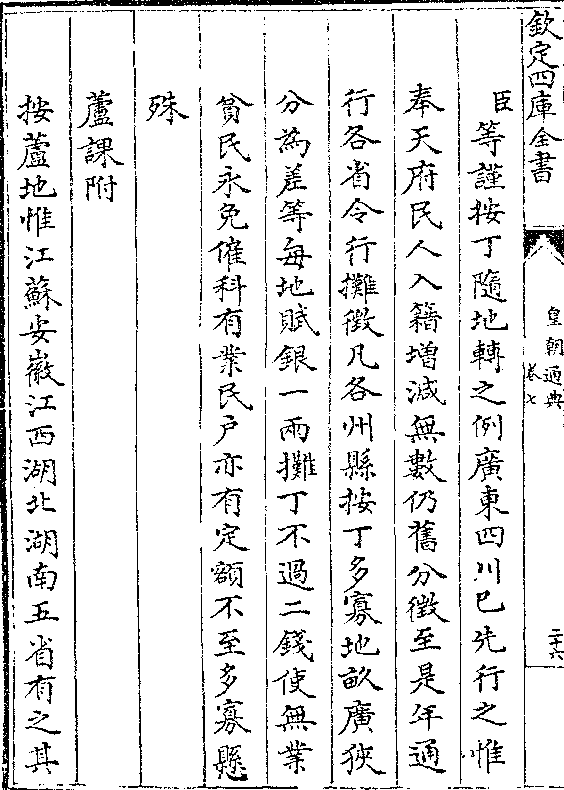 欽定四庫全書
皇朝通典
卷七
二十六
臣等謹按丁隨地轉之例廣東四川已先行之惟
奉天府民人入籍增減無數仍舊分徵至是年通
行各省令行攤徵凡各州縣按丁多寡地畝廣狹
分為差等每地賦銀一兩攤丁不過二錢使無業
貧民永免催科有業民户亦有定額不至多寡懸
殊
蘆課附
按蘆地惟江蘇安徽江西湖北湖南五省有之其